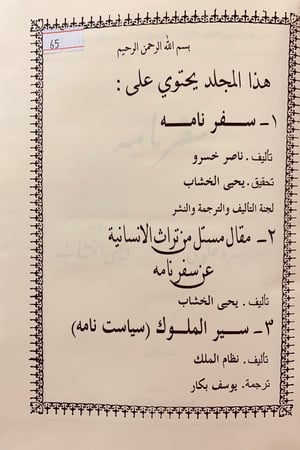 65
بسم الله الرحمن الرحيم
هذا المجلد يحتوي على :
١- سفر نامه
تأليف . ناصر خسرو
تحقيق . يحيى الخشاب
لجنة التأليف والترجمة والنشر
٢- مقال مستل من تراث الانسانية
عن سفر نامه
تأليف . يحيى الخشاب
٣- سير الملوك (سياست نامه)
تأليف . نظام الملك
ترجمة . يوسف بكار